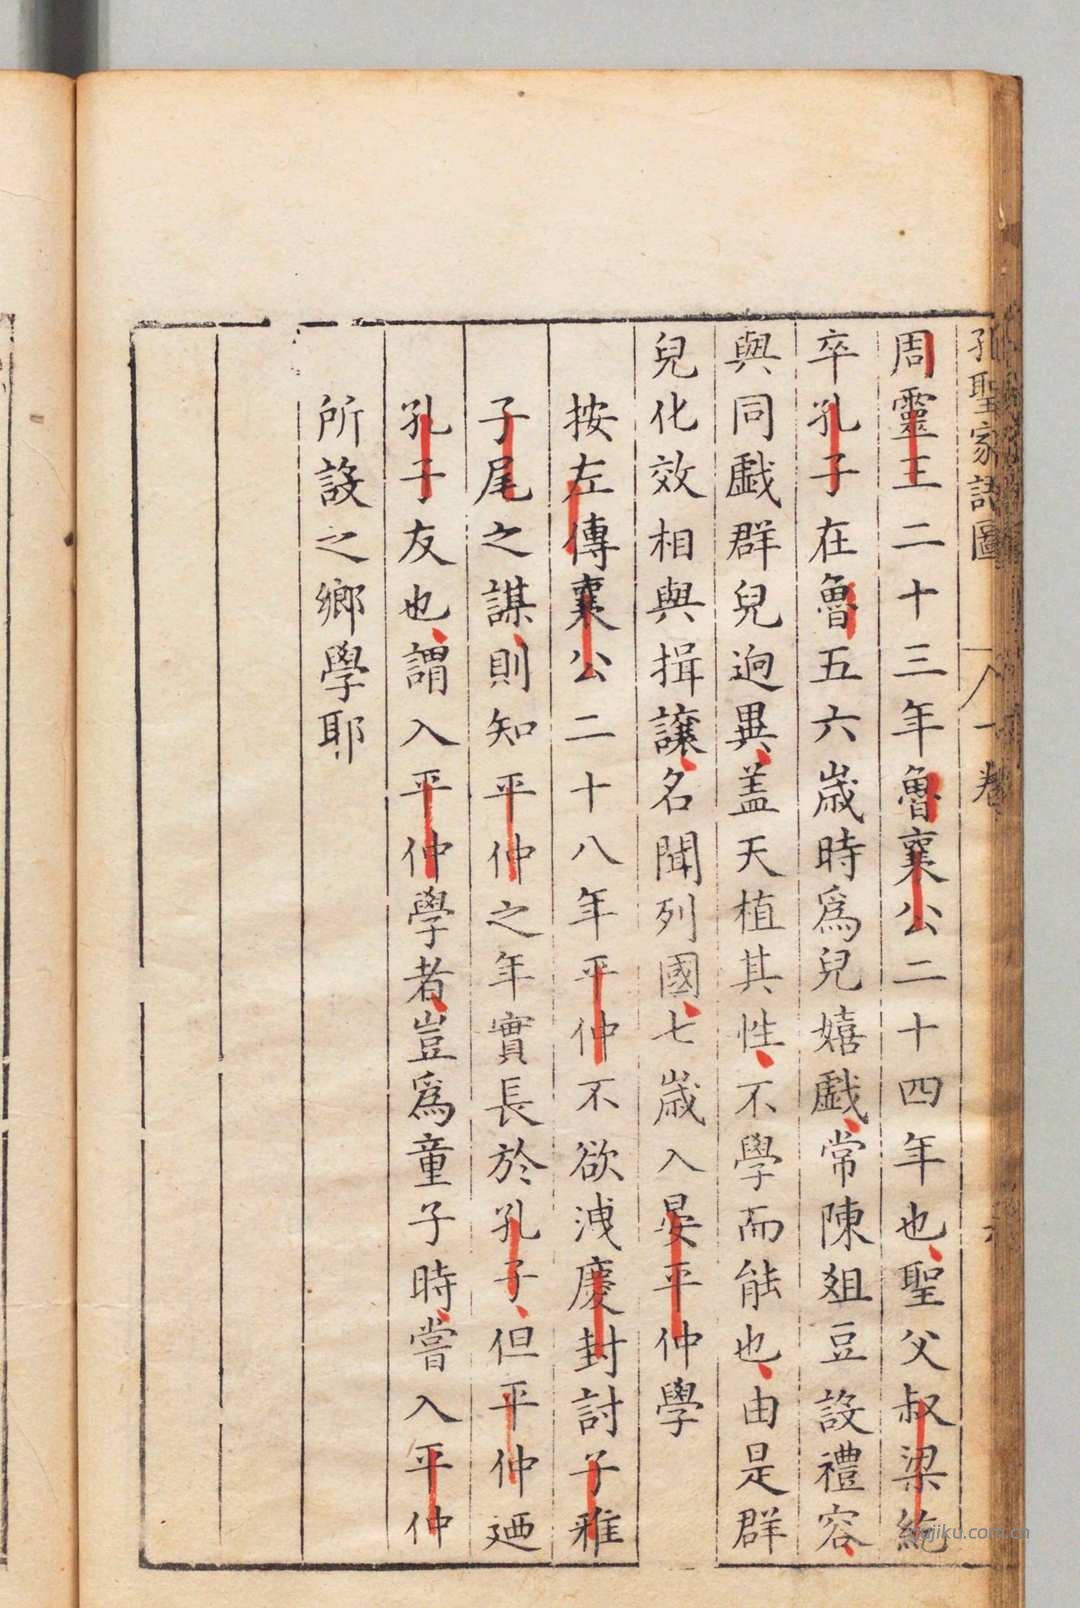 孔聖家語圖 一卷
周靈王二十三年魯襄公二十四年也聖父叔梁紇
卒孔子在魯五六歲時爲兒嬉戲常陳爼豆設禮容
與同戲群兒逈異盖天植其性不學而能也由是群
兒化效相與揖讓名聞列國七歲入晏平仲學
按左傳襄公二十八年平仲不欲洩慶封討子雅
子尾之謀則知平仲之年實長於孔子但平仲廼
孔子友也謂入平仲學者豈爲童子時嘗入平仲
所設之鄉學耶